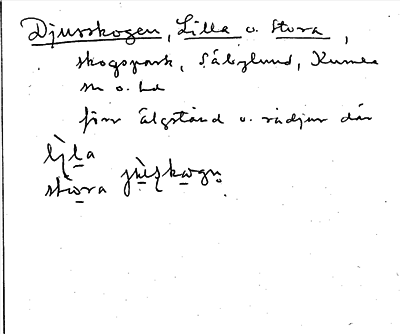 Djursskogen, Lilla o. Stora,
skogspark, Säbylund, Kumla
sn o. hd
förr älgstånd o. rådjur där
lịla
stora jʉskogn.